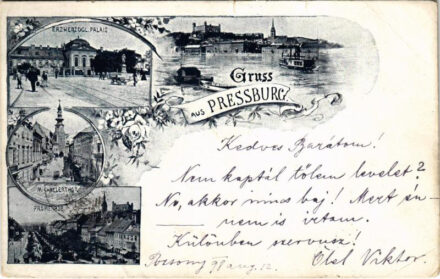 ERZHERZOGL. PALAIS
Gruss
AUS PRESSBURG.
MICHAELERTHOR
PROMENADE
Kedves Barátom!
Nem kaptál tőlem levelet?
No, akkor nincs baj! Mert én
nem is irtam.
Különben szervusz!
Ölel Viktor.
Pozsony 98 aug. 12.